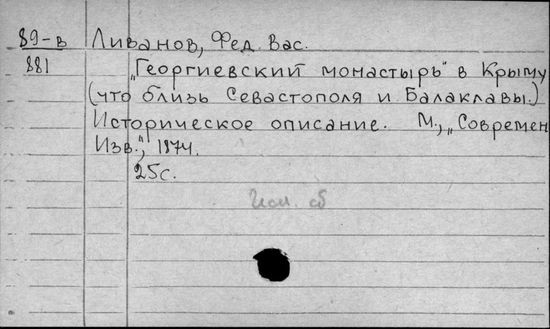 89-в Ливанов, Фед. Вас.
881 „Георгиевский монастырь" в Крыму
(что близь Севастополя и Балаклавы.)
Историческое описание. М., „Современ
Изв.", 1874.
25с.
сб